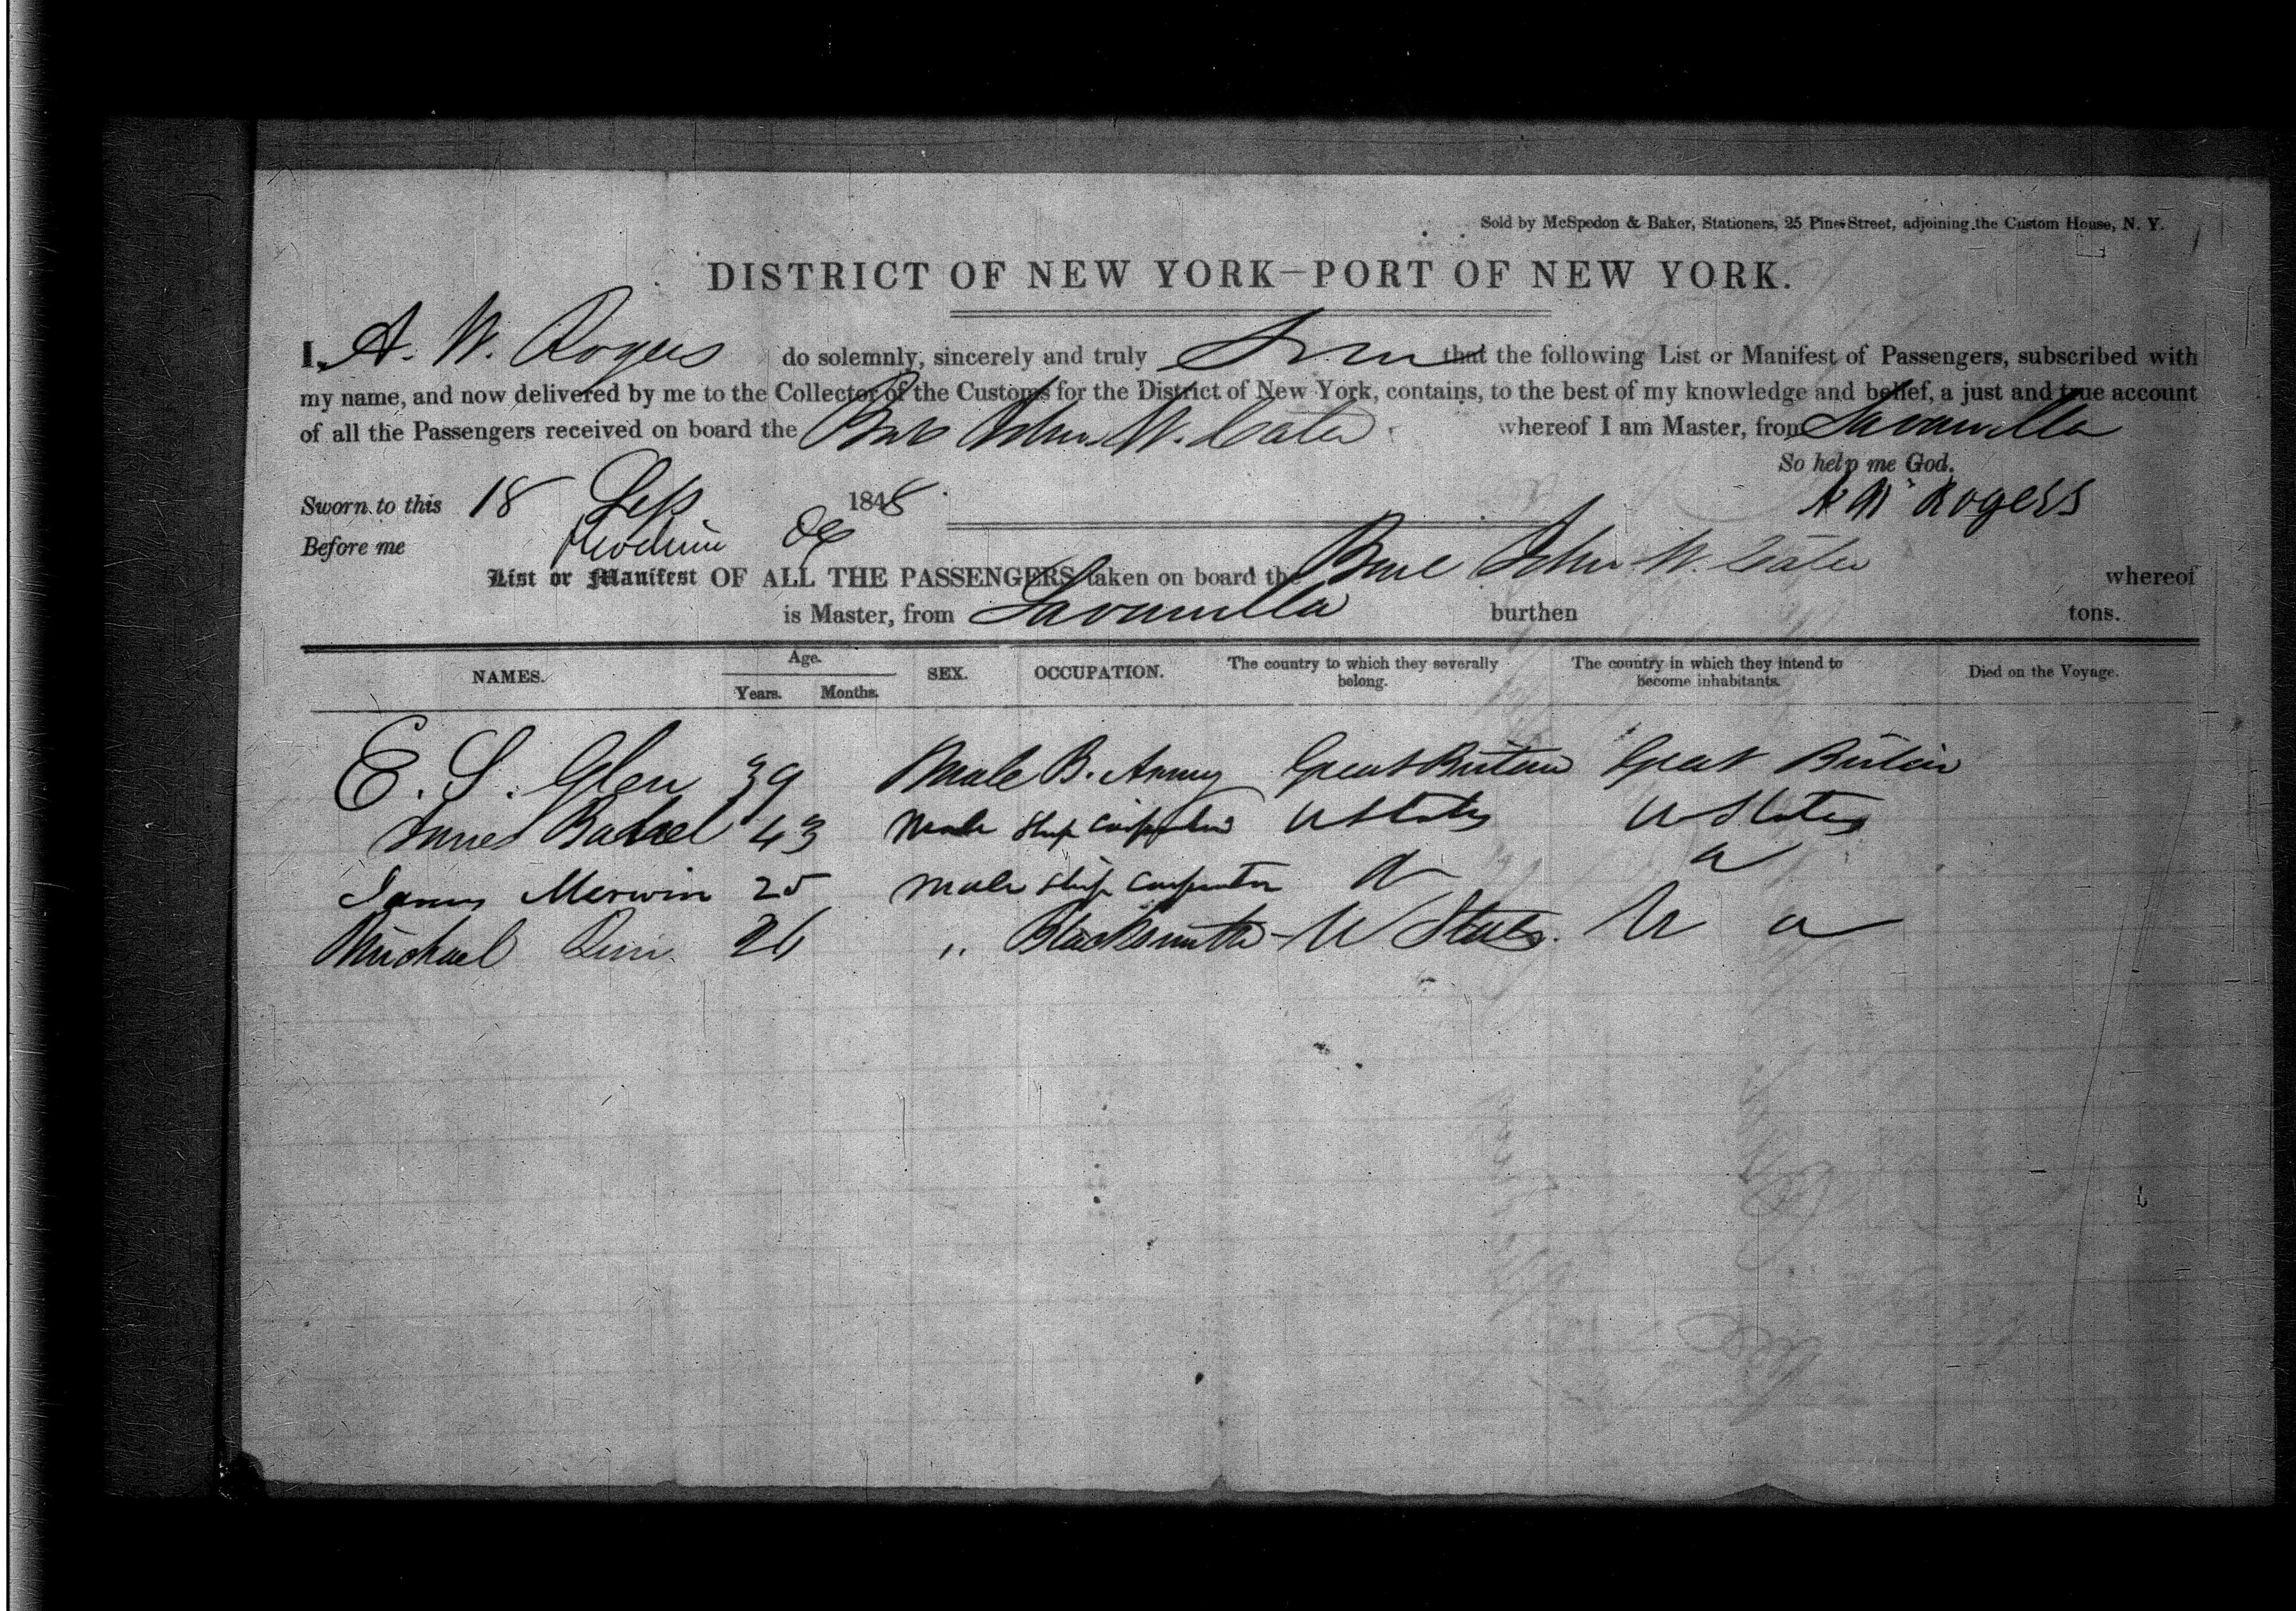 Sold by McSpedon & Baker, Stationers, 25 Pine Street, adjoining the Custom House, N. Y.
DISTRICT OF NEW YORK—PORT OF NEW YORK.
I, A. W. Rogers do solemnly, sincerely and truly that the following List or Manifest of Passengers, subscribed with
my name, and now delivered by me to the Collector of the Customs for the District of New York, contains, to the best of my knowledge and belief, a just and true account
of all the Passengers received on board the John W. Cater whereof I am Master, from Savanilla
So help me God.
Sworn to this 18 Sep 1848 A W Rogers
Before me
List or Manifest OF ALL THE PASSENGERS taken on board the John W. Cater whereof
is Master, from Savanilla burthen tons.
NAMES. Age. Years. Months. SEX. OCCUPATION. The country to which they severally belong. The country in which they intend to become inhabitants. Died on the Voyage.
E. S. Glen 39 Male B. Army Great Britain Great Britain
James 43 Male Ship Carpenter U States U States
James Merwin 25 Male Ship Carpenter
Michael 26 " Blacksmith U States. U